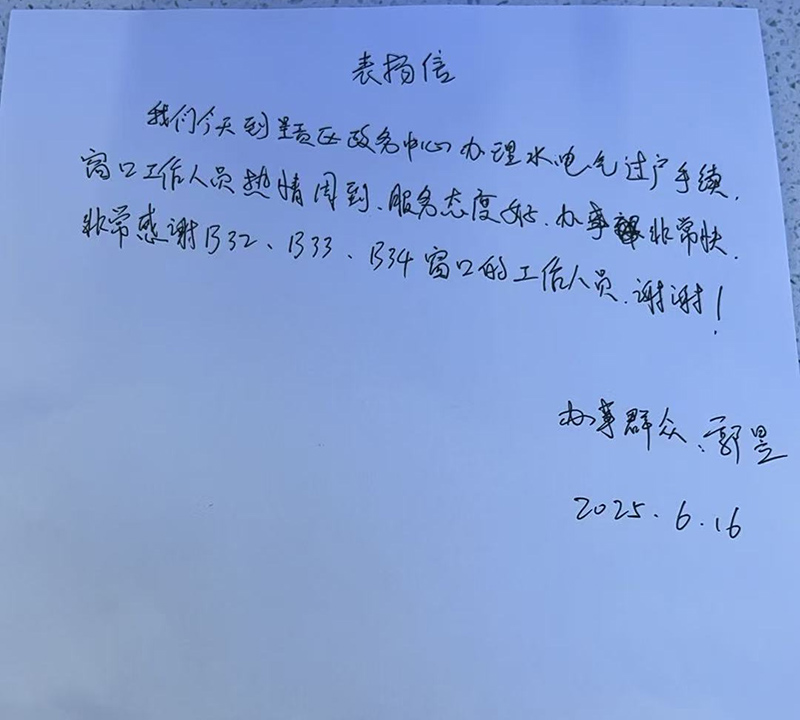 表扬信
我们今天到呈贡区政务中心办理水电气过户手续,
窗口工作人员热情周到、服务态度好、办事非常快.
非常感谢B32、B33、B34窗口的工作人员.谢谢!
办事群众:郭昱
2025.6.16